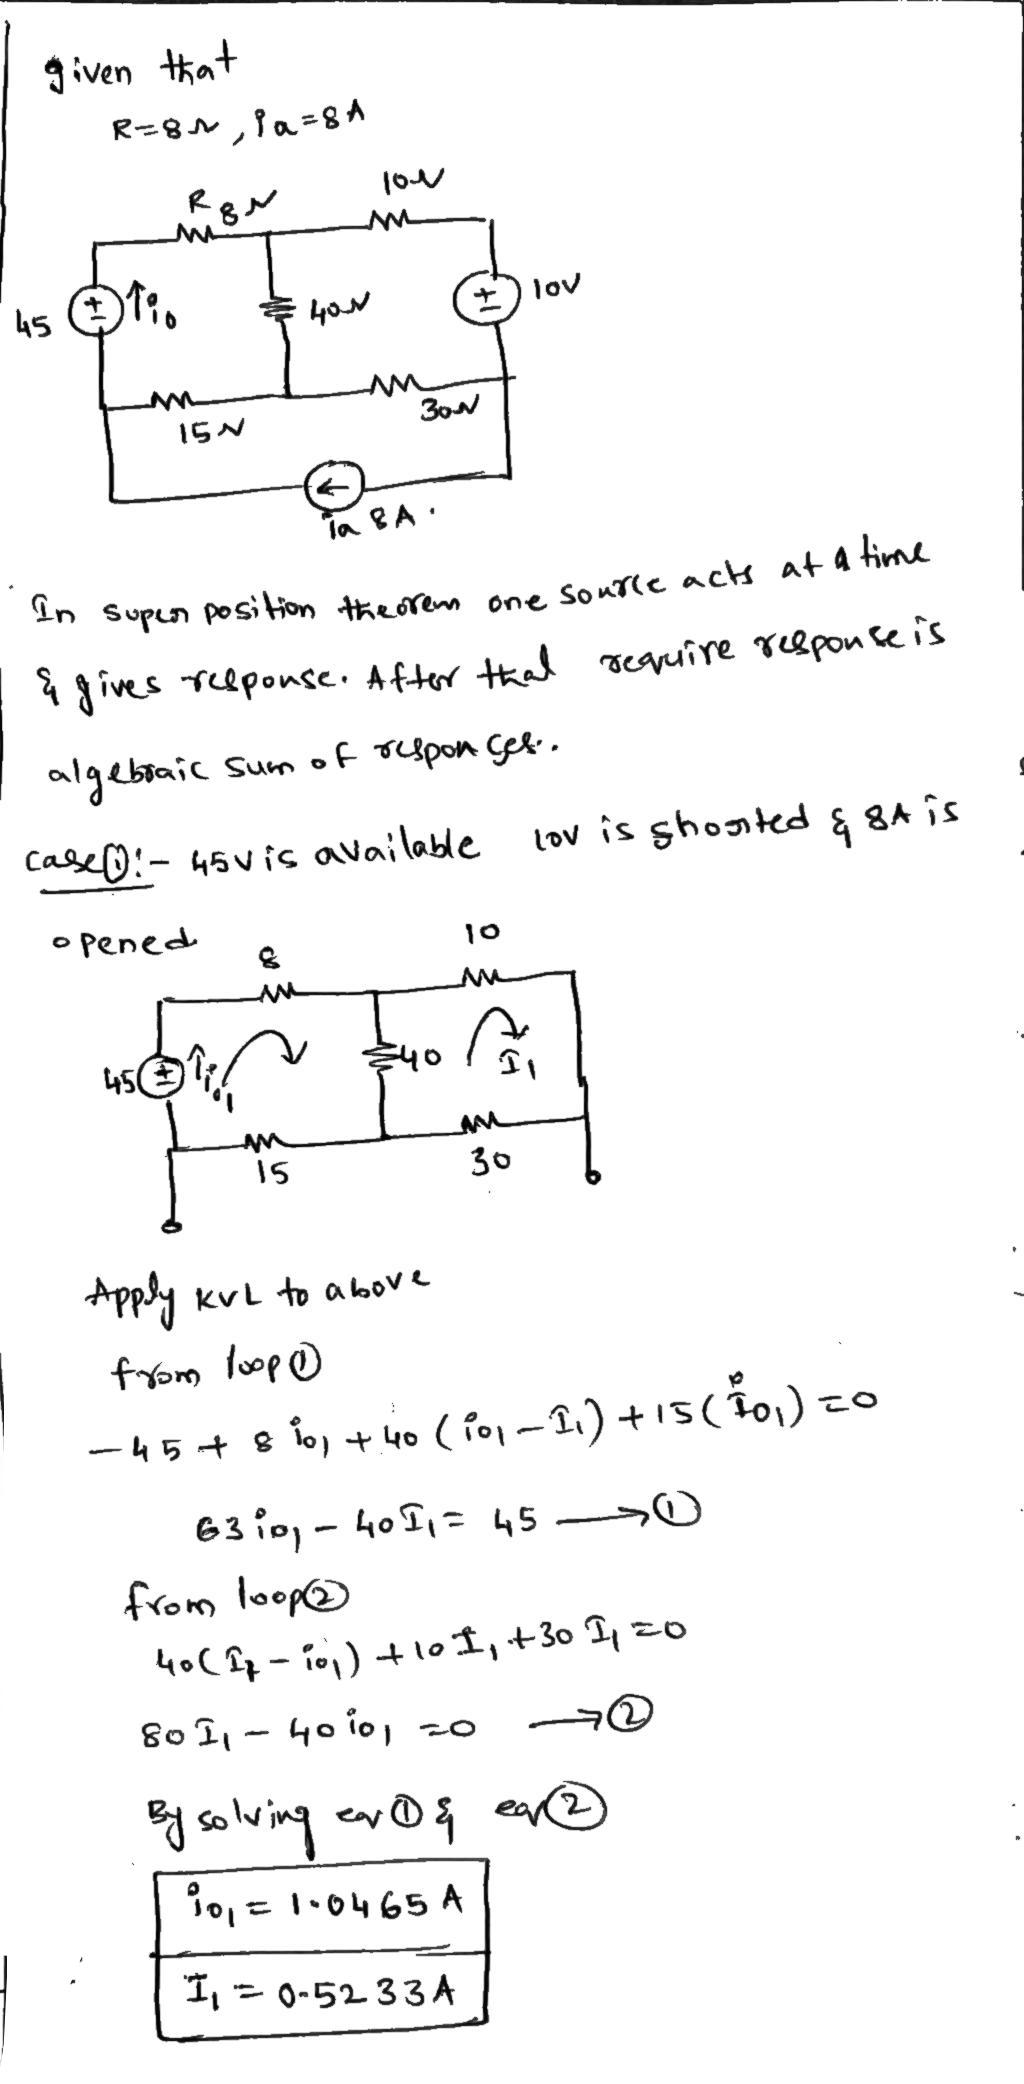 given that
R=8Ω, ia=8A
R 8Ω 10Ω
45 ± ↑i0 40Ω ± 10V
15Ω 30Ω
←
ia 8A.
In super position theorem one source acts at a time
& gives response. After that require response is
algebraic sum of responces.
case①:- 45V is available 10V is shorted & 8A is
opened
8 10
45 ± ↑i01 40 I1
15 30
Apply KVL to above
from loop①
-45 + 8 i01 + 40 (i01 - I1) + 15(i01) = 0
63 i01 - 40 I1 = 45 → ①
from loop②
40(I1 - i01) + 10 I1 + 30 I1 = 0
80 I1 - 40 i01 = 0 → ②
By solving eq ① & eq ②
i01 = 1.0465 A
I1 = 0.5233 A